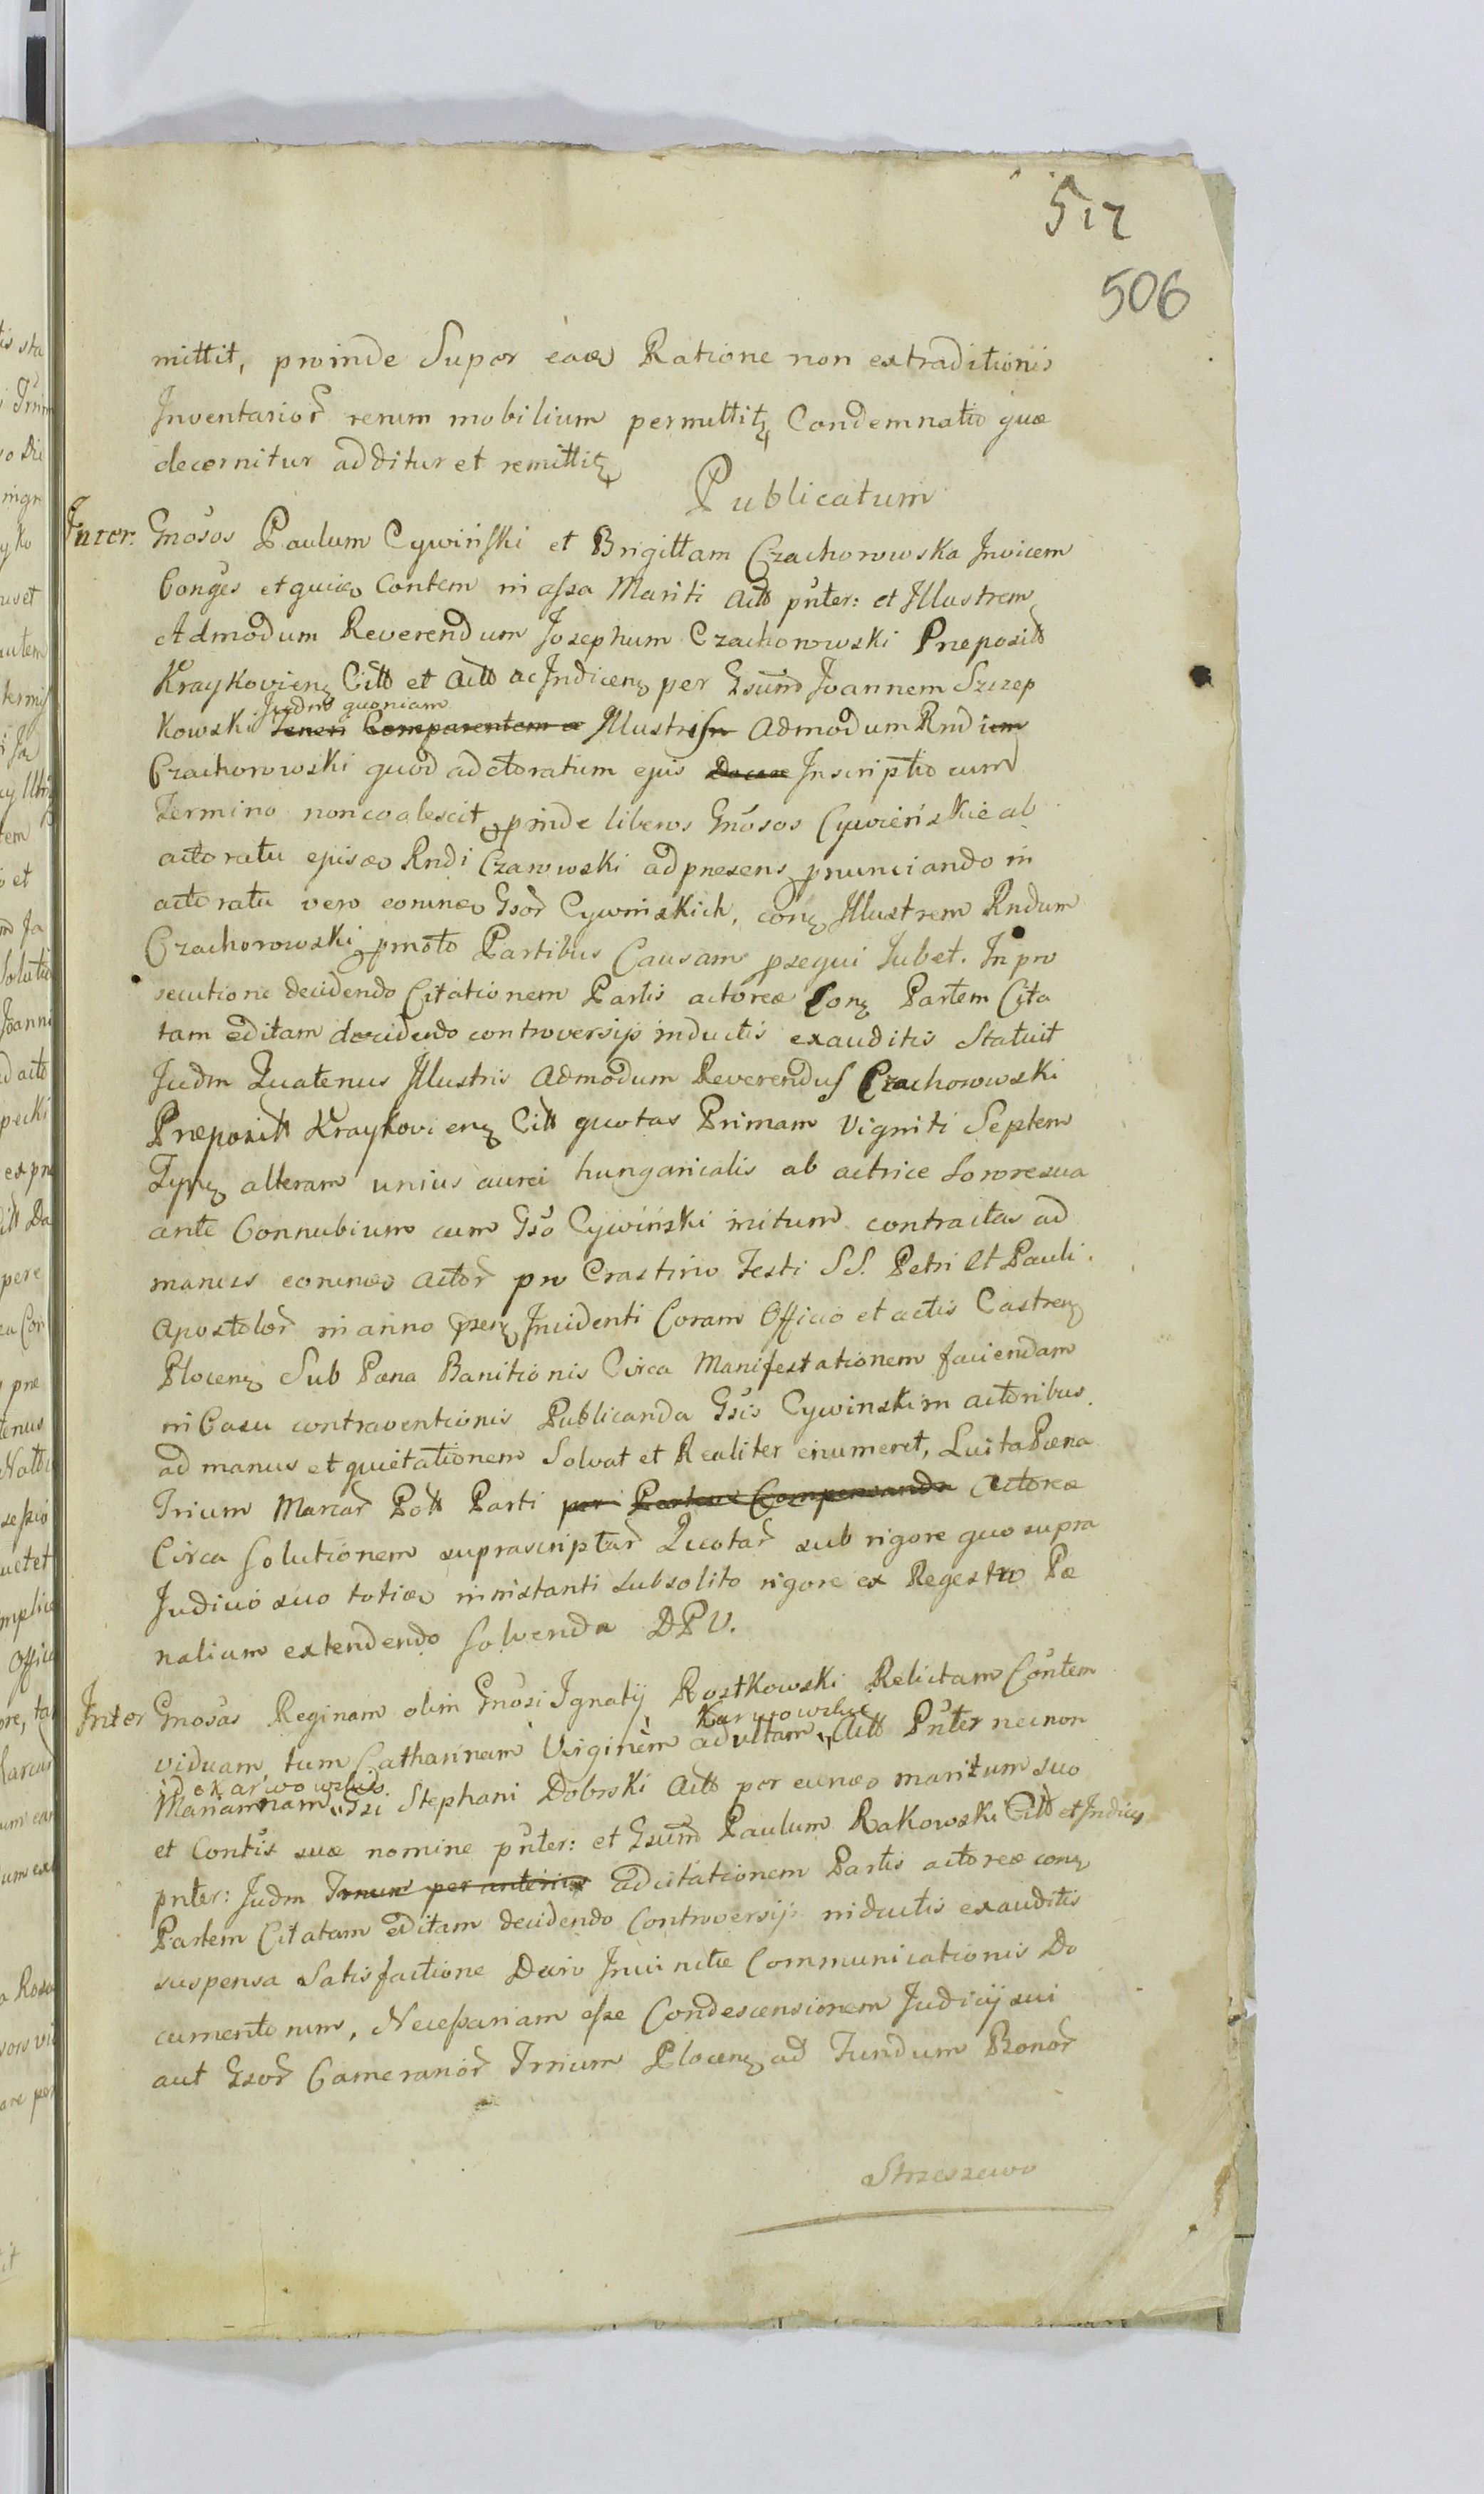 512
506
mittit, proinde Super eaœ Ratione non extraditionis
Inventarior̃ rerum mobilium permittitɀ Condemnatio quæ
decernitur additur et remittitɀ
Publicatum
Inter. Gnosos Paulum Cywiński et Brigittam Czachorowska Invicem
Conges et quieo Contem in assa Mariti Actt pnter: et Illustrem
Admodum Reverendum Josephum Czachorowski Preposit
Kraykovienɀ Citt et Actt ac Indicenɀ per Gsum Joannem Szczep
Judm quoniam
kowski Teneri Comparentem Illustrism Admodum Rndium
Czachorowski quod ad ctoratum ejus Docere Inscriptio cum
Termino non coalescit, pinde liberos Gnosos Cywieńskie ab
actoratu ejuseo Rndi Czarowski ad presens pnunciando in
actoratu vero eorumeo Gsor̃ Cywinskich, conɀ Illustrem Rndum
Czachorowski pmoto Partibus Causam psequi Jubet. In pro
secutione decidendo Citationem Partis actoreæ Conɀ Partem Cita
tam editam decidendo controversijs inductis exauditis Statuit
Judm Quatenus Illustris Admodum Reverendus Czachorowski
Præposit Kraykovi enɀ Citt quotas Primam Viginti Septem
Tympɀ alteram unius aurei hungaricalis ab actrice Sorore sua
ante Connubium cum Gso Cywiński initum contractas ad
manus eorumeo Actor̃ pro Crastino Festi SS. Petri et Pauli
Apostolor̃ in anno presɀ Incidenti Coram Officio et actis Castrenɀ
Plocenɀ Sub Pœna Banitionis Circa Manifestationem faciendam
in Casu contraventionis Publicanda Gsis Cywinskim actoribus
ad manus et quietationem Solvat et Realiter enumeret, Luita Pœna
Trium Marcar̃ Poll Parti per Partem Comparendo Actoreæ
Circa Solutionem suprascriptar̃ Quotar̃ sub rigore quo supra
Judicio suo totieo in instanti sub solito rigore ex Regestro Pœ
nalium extendendo solvenda DPV.
Inter Gnosas Reginam olim Gnosi Ignatij Rostkowski Relictam Contem
Karwowskie
viduam, tum Catharinam Virginem adultam, Actt Pnter necnon
de Karwowskis
Mariannam Gsi Stephani Dobrski Actt per euneo maritum suo
et Contis suæ nomine pnter: et Gsum Paulum Rakowski Citt et Indicɀ
pnter: Judm Tnum per anterius ad citationem Partis actoreæ conɀ
Partem Citatam editam decidendo Controversijs inductis exauditis
suspensa Satisfactione Decio Inviictæ Communicationis Do
cumentorum, Necessariam esse Condescensionem Judicij sui
aut Gsor̃ Camerarior̃ Trrium Plocenɀ ad Fundum Bonor̃
Strzeszewo